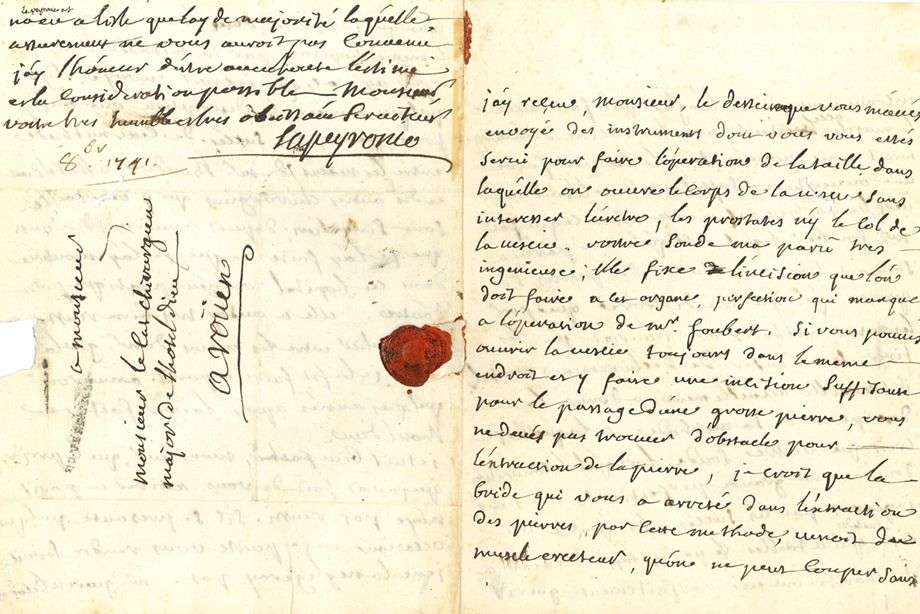 Lapeyronie
que lay de majorité laquelle
assurement ne vous auroit pas Convenu
jáy l'honeur d'être
et la Consideration possible Monsieur
votre tres humble et tres obeissant Serviteur
Lapeyronie
8br 1741.
a monsieur
monsieur le Cat chirurgien
major de l'hotel dieu
a roüen
jáy reçeu, monsieur, le dessein que vous maves
envoyé des instruments dont vous vous estes
Servi pour faire l'operation de la taille dans
laquelle on ouvre le Corps de la vessie Sans
interesser l'uretre, les prostates ny le Col de
la vessie. vottre Sonde ma parü tres
ingenieuse; Elle fixe l'incision que l'on
doit faire a Cet organe, perfection qui manque
a l'operation de mr. foubert. Si vous pouves
ouvrir la vessie toujours dans le meme
endroit et y faire une incition Suffisante
pour le passage d'une grosse pierre, vous
ne devés pas trouver d'obstacle pour
l'extraction de la pierre, je Croit que la
bride qui vous a arresté dans l'extraction
des pierres, par Cette methode, venoit du
muscle erecteur, qu'on ne peut Couper Sans